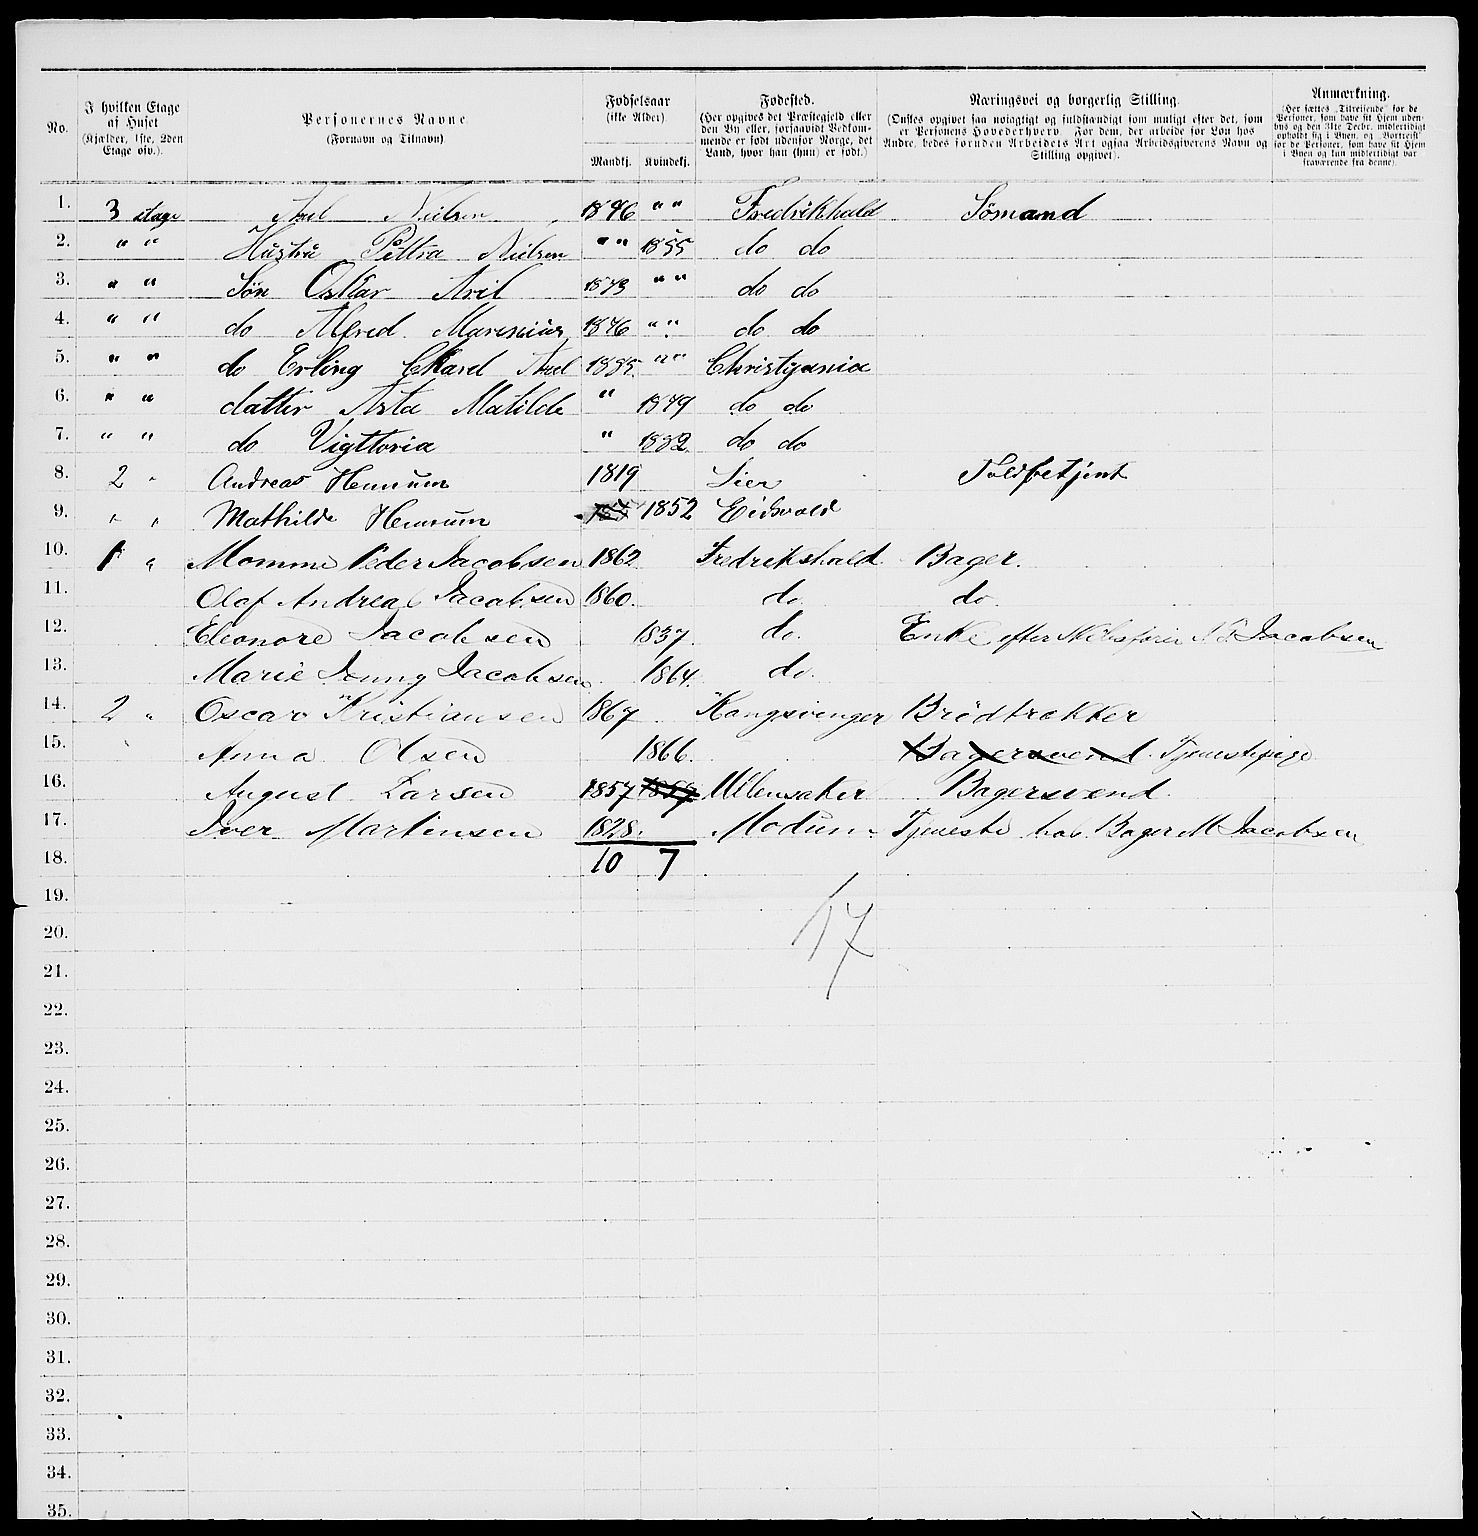 No.
I hvilken Etage af Huset (Kjælder, 1ste, 2den Etage osv.).
Personernes Navne (Fornavn og Tilnavn)
Fødselsaar (ikke Alder)
Mandkj. Kvindekj.
Fødested. (Her opgives det Præstegjeld eller den By eller, forsaavidt Vedkommende er født udenfor Norge, det Land, hvor han (hun) er født.)
Næringsvei og borgerlig Stilling. (Ønskes opgivet saa nøiagtigt og fuldstændigt som muligt efter det, som er Personens Hovederhverv. For dem, der arbeide for Løn hos Andre, bedes foruden Arbeidets Art ogsaa Arbeidsgiverens Navn og Stilling opgivet).
Anmærkning. (Her sættes „Tilreisende" for de Personer, som have sit Hjem udenbys og den 31te Decbr. midlertidigt opholdt sig i Byen, og „Bortreist" for de Personer, som have sit Hjem i Byen og kun midlertidigt var fraværende fra denne).
1. 3 etage Axel Nielsen 1846 " " Fredrikhald Sömand
2. " " Hustru Pettra Nielsen " " 1855 do do
3. " " Sön Oskar Axil 1873 " " do do
4. " " do Alfred Marinius 1876 " " do do
5. " " do Erling Ekard Axel 1885. " " Christyania
6. " " datter Asta Matilde " 1879 do do
7. " " do Vigttoria " 1882. do do
8. 2 " Andreas Hennum 1819 Lier Toldbetjent
9. " " Mathilde Hennum 1852 Eidsvold
10. 1 " Momme Peder Jacobsen 1862 Fredrikshald Bager.
11. Olaf Andreas Jacobsen 1860. do. do.
12. Eleonore Jacobsen 1837. do. Enke efter Jacobsen
13. Marie Jenny Jacobsen 1864. do.
14. 2 " Oscar Kristiansen 1867 Kongsvinger Brödtrekker
15. Anna Olsen 1866. Bagersvend Tjenestepige
16. August Larsen 1857 1857 Ullensaker Bagersvend
17. Iver Martinsen 1828. Modum Tjeneste hos Bager M Jacobsen
18. 10 7
19.
17
20.
21.
22.
23.
24.
25.
26.
27.
28.
29.
30.
31.
32.
33.
34.
35.